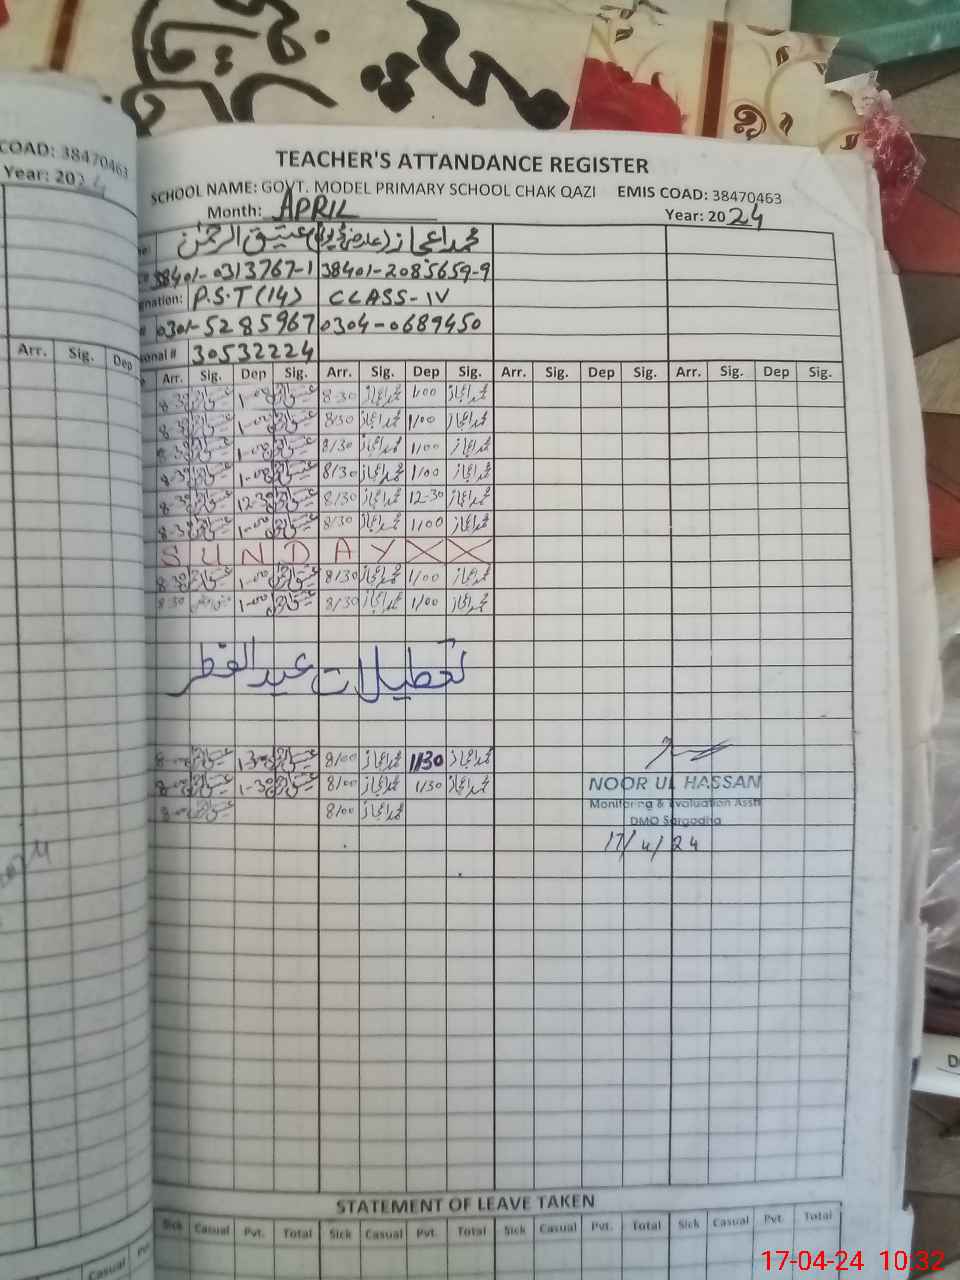 COAD: 38470463
Year: 202
Arr. Sig. Dep
TEACHER'S ATTANDANCE REGISTER
SCHOOL NAME: GOVT. MODEL PRIMARY SCHOOL CHAK QAZI EMIS COAD: 38470463
Month: APRIL Year: 2024
عتیق الرحمٰن محمد اعجاز
38401-0313767-1 38401-2085659-9
gnation: P.S.T (14) CLASS-IV
# 0301-5285967 0304-0689450
onal # 30532224
Arr. Sig. Dep Sig. Arr. Sig. Dep Sig. Arr. Sig. Dep Sig. Arr. Sig. Dep Sig.
8-30 1-00 8-30 محمد اعجاز 1/00 محمد اعجاز
8-30 1-00 8/30 محمد اعجاز 1/00 محمد اعجاز
8-30 1-00 8/30 محمد اعجاز 1/00 محمد اعجاز
8-30 1-00 8/30 محمد اعجاز 1/00 محمد اعجاز
8-30 12-30 8/30 محمد اعجاز 12-30 محمد اعجاز
8-30 1-00 8/30 محمد اعجاز 1/00 محمد اعجاز
S U N D A Y X X
8-30 1-00 8/30 محمد اعجاز 1/00 محمد اعجاز
8-30 1-00 8/30 محمد اعجاز 1/00 محمد اعجاز
تعطیلات عید الفطر
8-00 1-30 8/00 محمد اعجاز 1/30 محمد اعجاز
8-00 1-30 8/00 محمد اعجاز 1/30 محمد اعجاز
8-00 8/00 محمد اعجاز
NOOR UL HASSAN
Monitoring & Evaluation Asstt
DMO Sargodha
17/4/24
STATEMENT OF LEAVE TAKEN
Sick Casual Pvt. Total Sick Casual Pvt. Total Sick Casual Pvt. Total Sick Casual Pvt. Total
Casual Pv
17-04-24 10:32